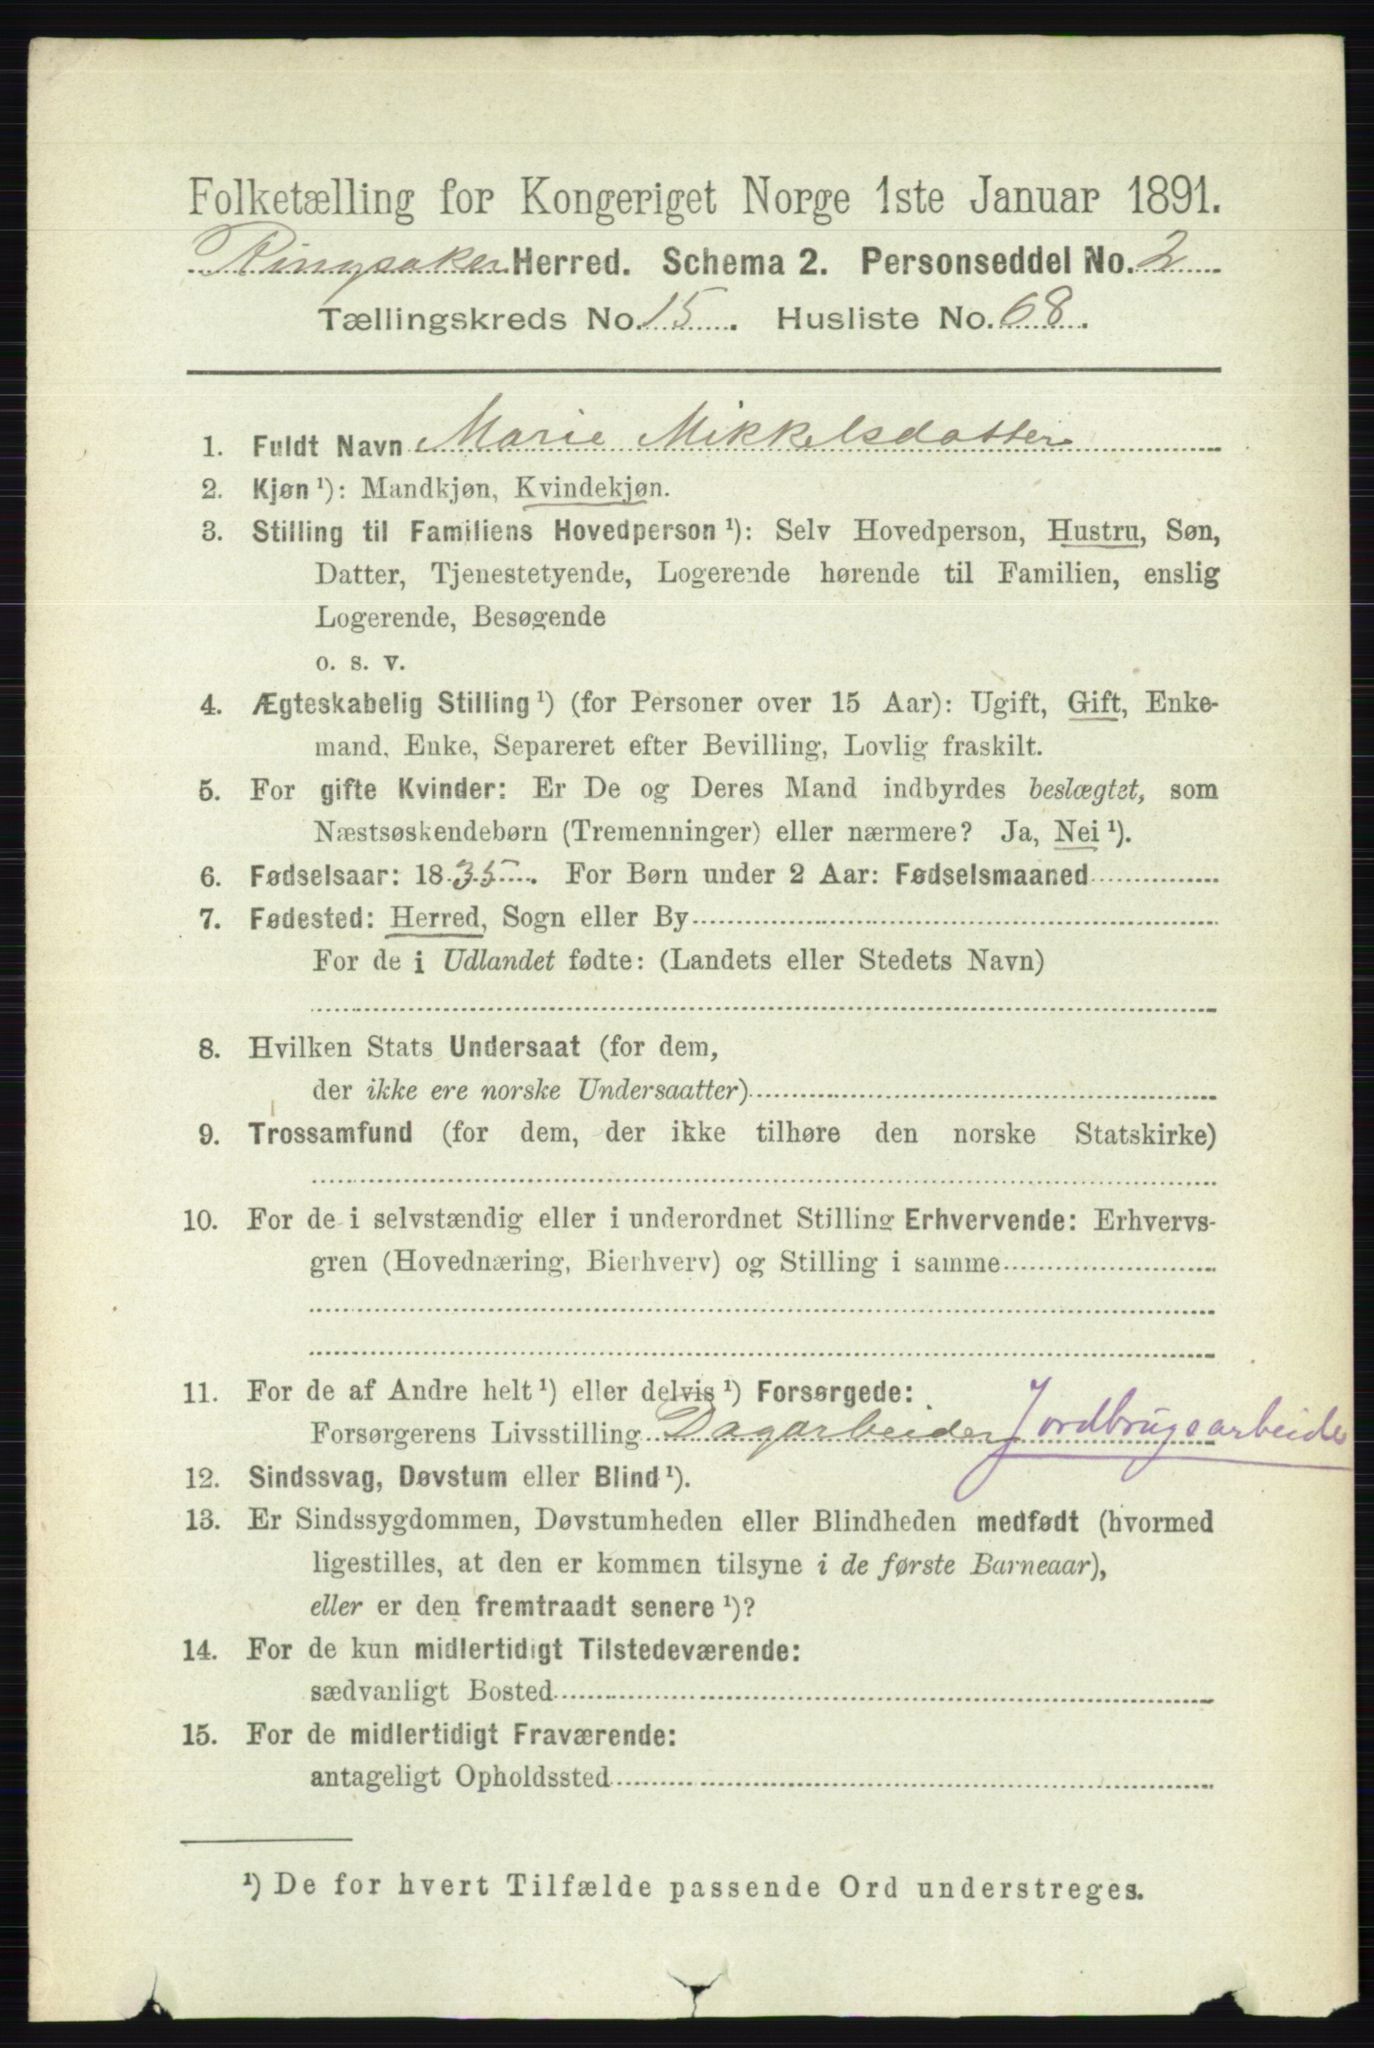 Folketælling for Kongeriget Norge 1ste Januar 1891.
Ringsaker Herred. Schema 2. Personseddel No. 2
Tællingskreds No. 15. Husliste No. 68.
1. Fuldt Navn Marie Mikkelsdatter
2. Kjøn ¹): Mandkjøn, Kvindekjøn.
3. Stilling til Familiens Hovedperson ¹): Selv Hovedperson, Hustru, Søn,
Datter, Tjenestetyende, Logerende hørende til Familien, enslig
Logerende, Besøgende
o. s. v.
4. Ægteskabelig Stilling ¹) (for Personer over 15 Aar): Ugift, Gift, Enke-
mand, Enke, Separeret efter Bevilling, Lovlig fraskilt.
5. For gifte Kvinder: Er De og Deres Mand indbyrdes beslægtet, som
Næstsøskendebørn (Tremenninger) eller nærmere? Ja, Nei ¹).
6. Fødselsaar: 1835. For Børn under 2 Aar: Fødselsmaaned
7. Fødested: Herred, Sogn eller By
For de i Udlandet fødte: (Landets eller Stedets Navn)
8. Hvilken Stats Undersaat (for dem,
der ikke ere norske Undersaatter)
9. Trossamfund (for dem, der ikke tilhøre den norske Statskirke)
10. For de i selvstændig eller i underordnet Stilling Erhvervende: Erhvervs-
gren (Hovednæring, Bierhverv) og Stilling i samme
11. For de af Andre helt ¹) eller delvis ¹) Forsørgede:
Forsørgerens Livsstilling Dagarbeider Jordbrugsarbeider
12. Sindssvag, Døvstum eller Blind ¹).
13. Er Sindssygdommen, Døvstumheden eller Blindheden medfødt (hvormed
ligestilles, at den er kommen tilsyne i de første Barneaar),
eller er den fremtraadt senere ¹)?
14. For de kun midlertidigt Tilstedeværende:
sædvanligt Bosted
15. For de midlertidigt Fraværende:
antageligt Opholdssted
¹) De for hvert Tilfælde passende Ord understreges.